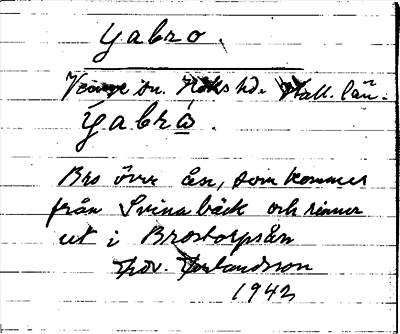 Yabro.
Veinge sn. Höks hd. Hall. län.
Yabrω̲.
Bro över ån, som kommer
från Svinabäck och rinner
ut i Brostorpsån
1942